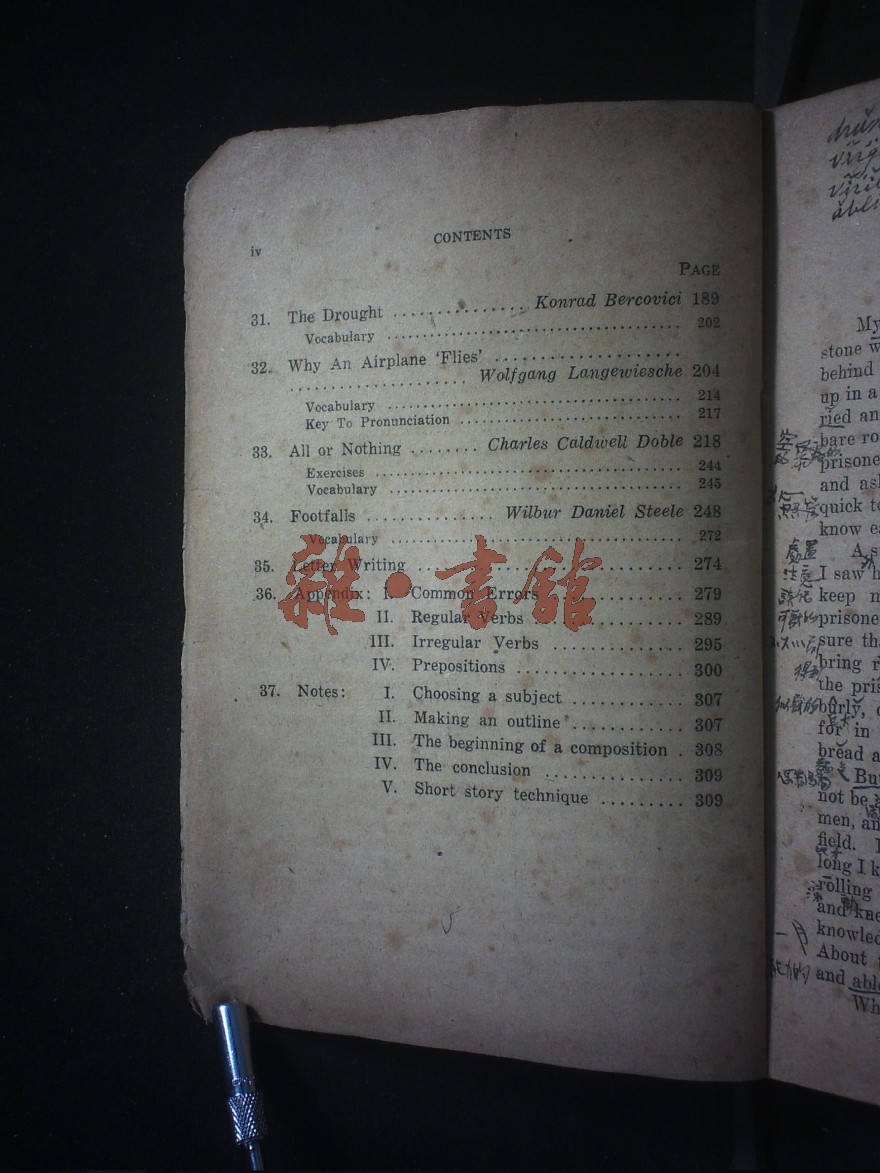 CONTENTS
iv
PAGE
31. The Drought ............... Konrad Bercovici 189
Vocabulary ................................ 202
32. Why An Airplane 'Flies' ....................
.................... Wolfgang Langewiesche 204
Vocabulary ................................ 214
Key To Pronunciation ........................ 217
33. All or Nothing ........ Charles Caldwell Doble 218
Exercises .................................. 244
Vocabulary ................................ 245
34. Footfalls ............... Wilbur Daniel Steele 248
Vocabulary ................................ 272
35. Letter Writing .............................. 274
36. Appendix: I. Common Errors ............... 279
II. Regular Verbs ............... 289
III. Irregular Verbs .............. 295
IV. Prepositions .................. 300
37. Notes: I. Choosing a subject ............ 307
II. Making an outline ............ 307
III. The beginning of a composition . 308
IV. The conclusion ............... 309
V. Short story technique ......... 309
雜·書館
My
stone
behind
up in a
ried an
bare
prisone
and
quick
know
A
I saw
keep
prisone
sure
bring
the
burly,
for in
bread a
not be
men, an
field.
long I k
rolling
and
knowled
About
and able
Wh